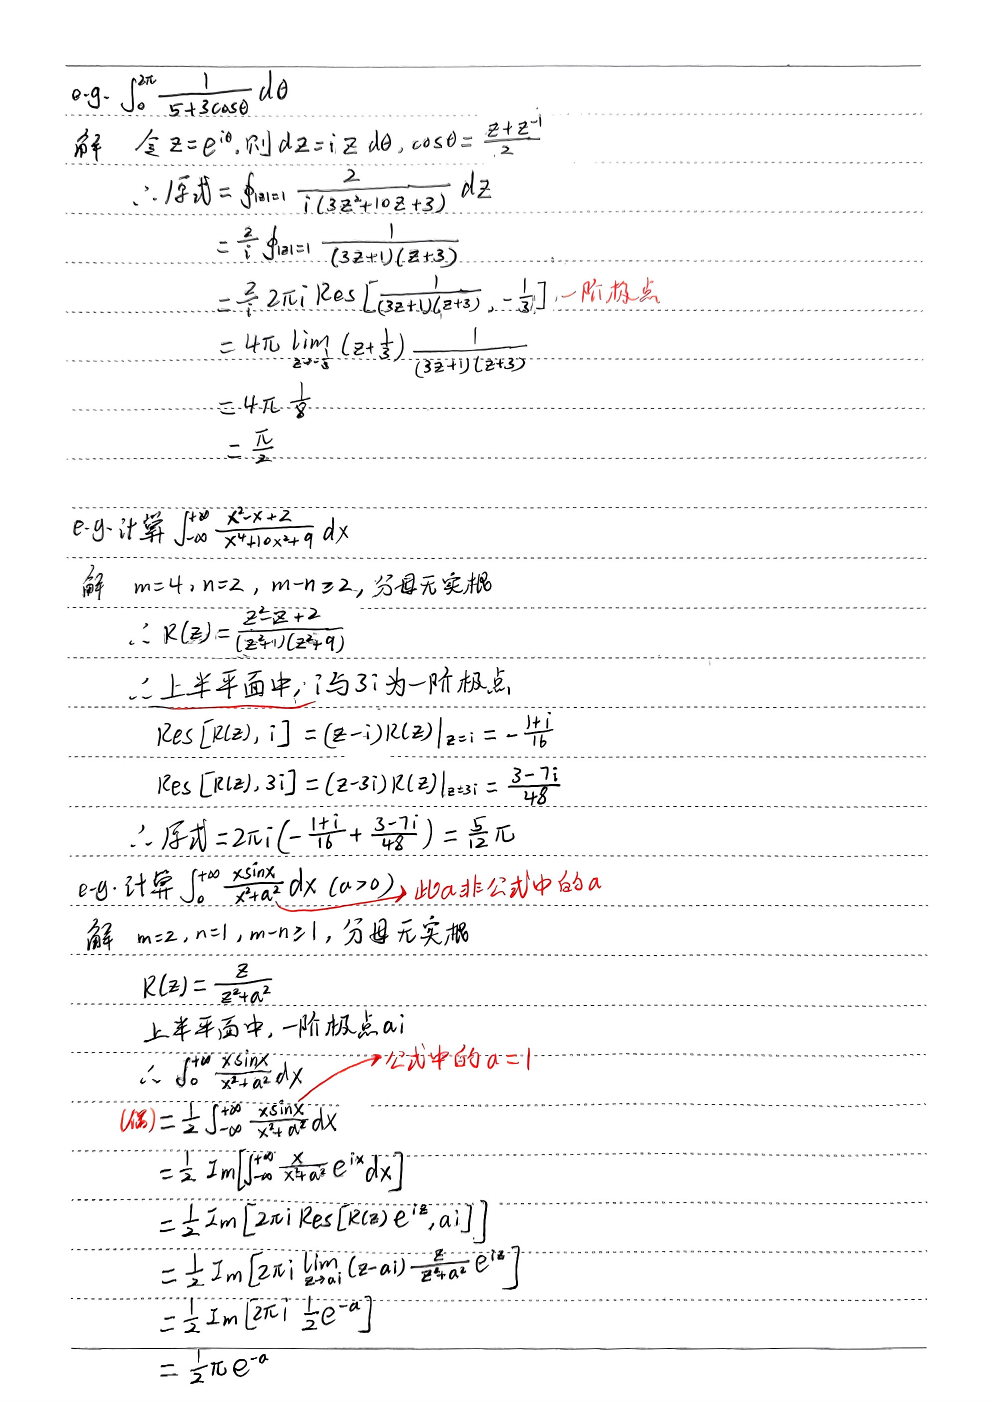 e.g. ∫₀^{2π} 1/(5+3cosθ) dθ
解 令 z=e^{iθ}, 则 dz=iz dθ, cosθ=(z+z^{-1})/2
∴ 原式 = ∮_{|z|=1} 2/(i(3z²+10z+3)) dz
= 2/i ∮_{|z|=1} 1/((3z+1)(z+3))
= 2/i 2πi Res[1/((3z+1)(z+3)), -1/3] 一阶极点
= 4π lim_{z→-1/3} (z+1/3) 1/((3z+1)(z+3))
= 4π 1/8
= π/2
e.g. 计算 ∫_{-∞}^{+∞} (x²-x+2)/(x⁴+10x²+9) dx
解 m=4, n=2, m-n≥2, 分母无实根
∴ R(z)=(z²-z+2)/((z²+1)(z²+9))
∴ 上半平面中, i与3i为一阶极点
Res[R(z), i] = (z-i)R(z)|_{z=i} = -(1+i)/16
Res[R(z), 3i] = (z-3i)R(z)|_{z=3i} = (3-7i)/48
∴ 原式 = 2πi(-(1+i)/16 + (3-7i)/48) = 5/12 π
e.g. 计算 ∫₀^{+∞} xsinx/(x²+a²) dx (a>0) 此a非公式中的a
解 m=2, n=1, m-n≥1, 分母无实根
R(z)= z/(z²+a²)
上半平面中, 一阶极点ai
∴ ∫₀^{+∞} xsinx/(x²+a²) dx 公式中的a=1
(偶) = 1/2 ∫_{-∞}^{+∞} xsinx/(x²+a²) dx
= 1/2 Im[∫_{-∞}^{+∞} x/(x²+a²) e^{ix} dx]
= 1/2 Im[2πi Res[R(z)e^{iz}, ai]]
= 1/2 Im[2πi lim_{z→ai} (z-ai) z/(z²+a²) e^{iz}]
= 1/2 Im[2πi 1/2 e^{-a}]
= 1/2 π e^{-a}